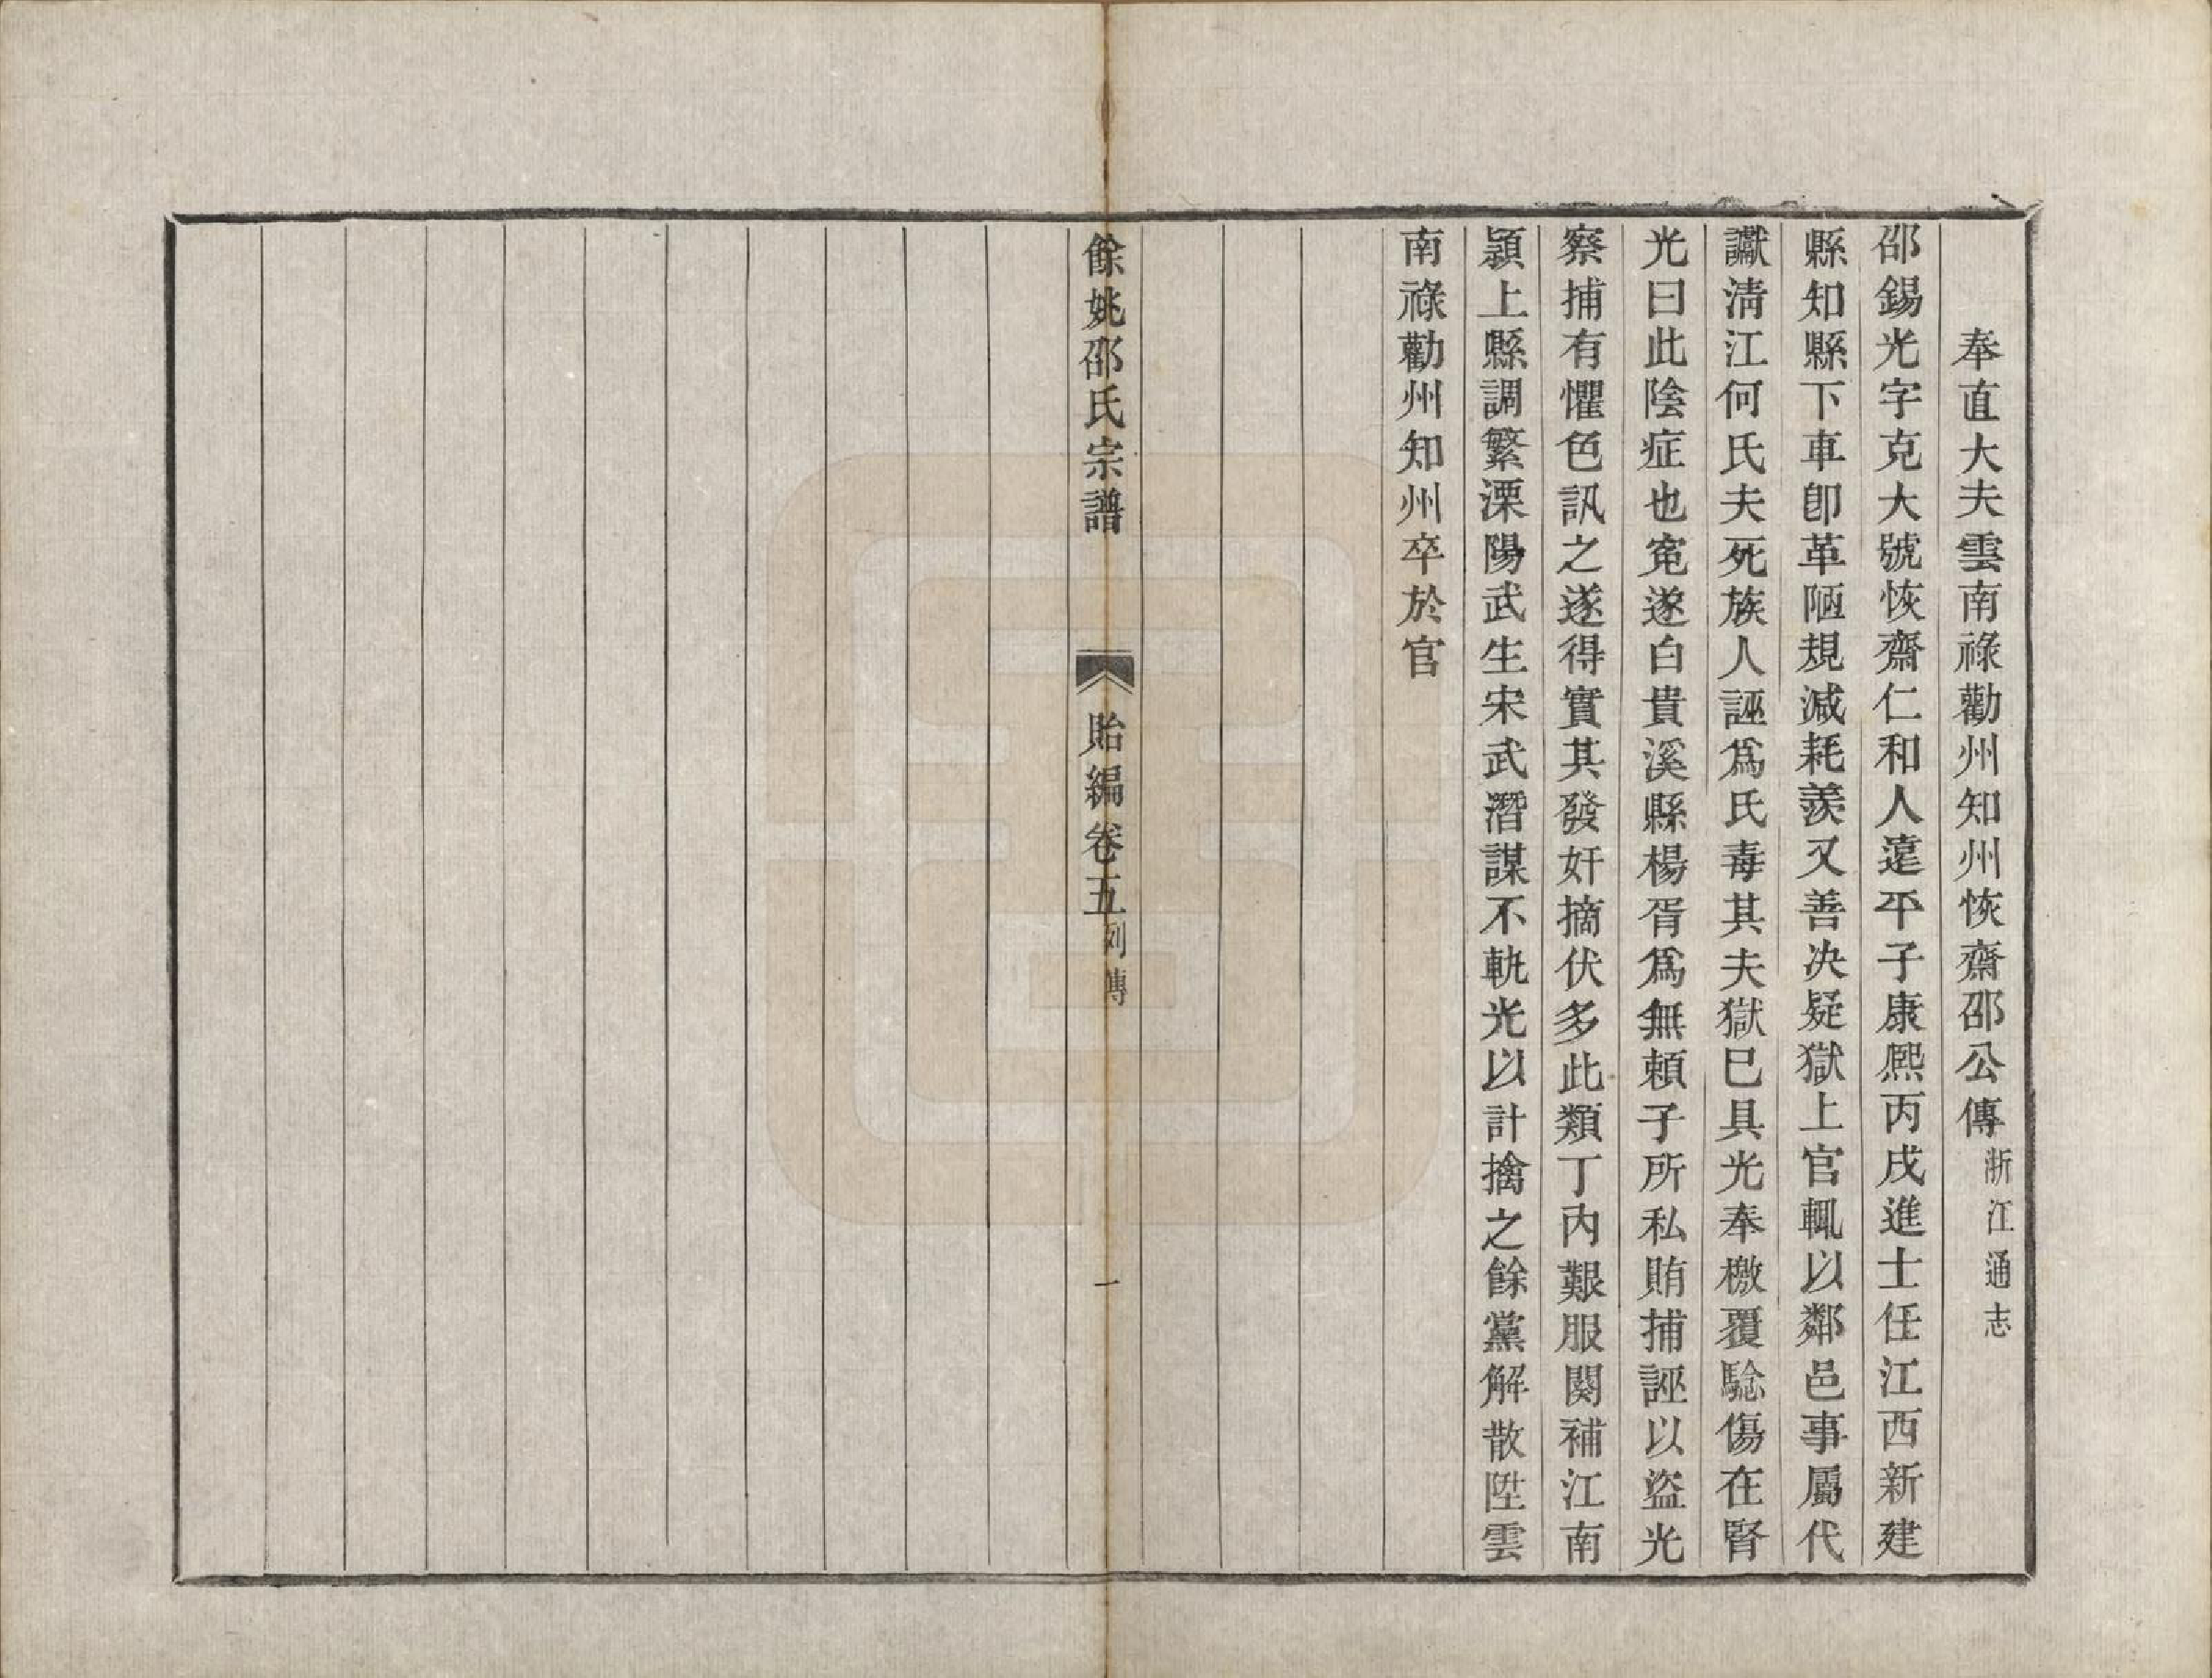 奉直大夫雲南祿勸州知州恢齋邵公傳浙江通志
邵錫光字克大號恢齋仁和人遠平子康熙丙戌進士任江西新建
縣知縣下車卽革陋規減耗羨又善決疑獄上官輒以鄰邑事屬代
讞清江何氏夫死族人誣爲氏毒其夫獄巳具光奉檄覆騐傷在腎
光曰此陰症也寃遂白貴溪縣楊胥爲無頼子所私賄捕誣以盜光
察捕有懼色訊之遂得實其發奸摘伏多此類丁內艱服闋補江南
潁上縣調繁溧陽武生宋武潛謀不軌光以計擒之餘黨解散陞雲
南祿勸州知州卒於官
餘姚邵氏宗譜
貽編卷五列傳
一